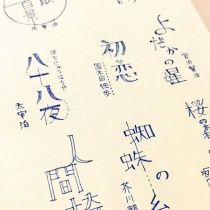 よだかの星
宮沢賢治
初恋
国木田独歩
はちじゅうはちや
八十八夜
太宰治
桜の
蜘蛛の糸
芥川龍
人間